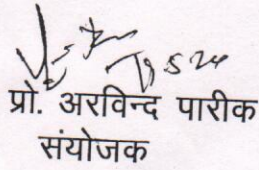 प्रो. अरविन्द पारीक
संयोजक